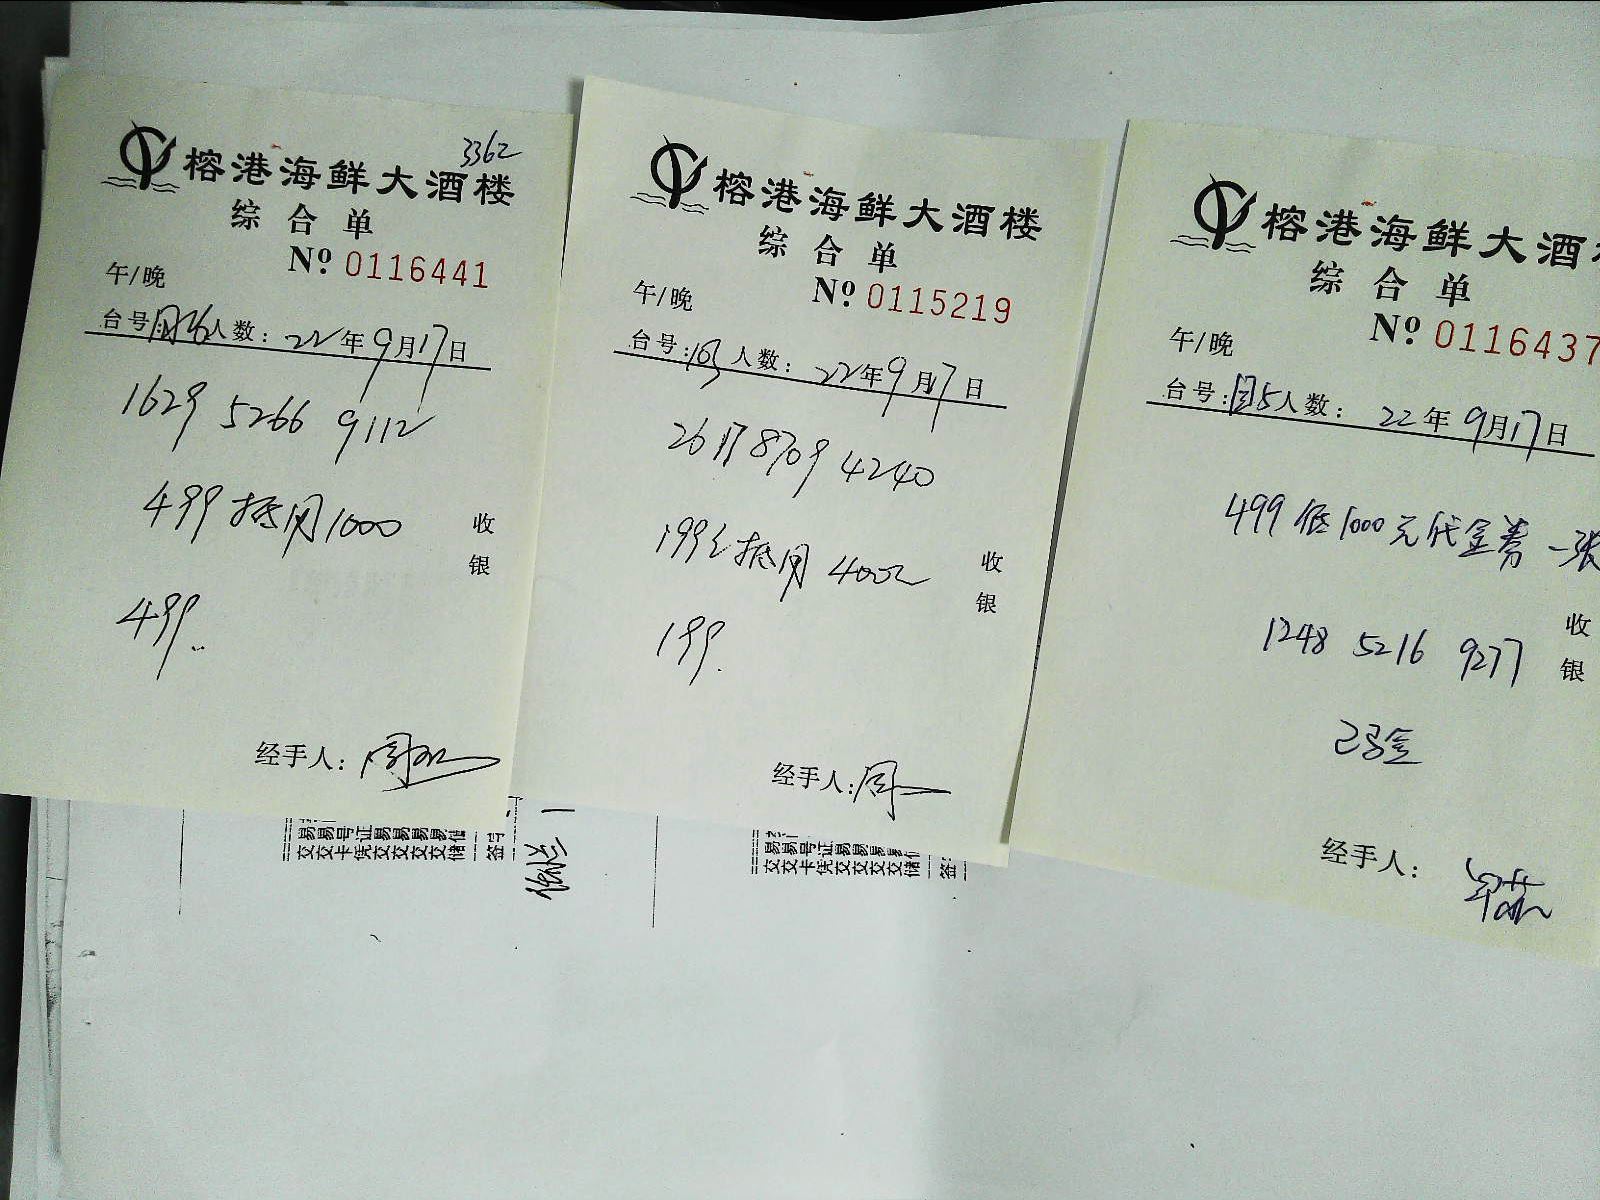 3362
榕港海鲜大酒楼
综合单
Nº 0116441
午/晚
台号 人数: 22年9月17日
1629 5266 9112
499抵用1000
收
银
499
经手人:
榕港海鲜大酒楼
综合单
Nº 0115219
午/晚
台号: 人数: 22年9月17日
2617 8709 4240
199元抵用400元
收
银
199
经手人:
榕港海鲜大酒
综合单
Nº 0116437
午/晚
台号: 人数: 22年9月17日
499抵1000元代金券一张
收
1248 5216 9277
银
经手人: